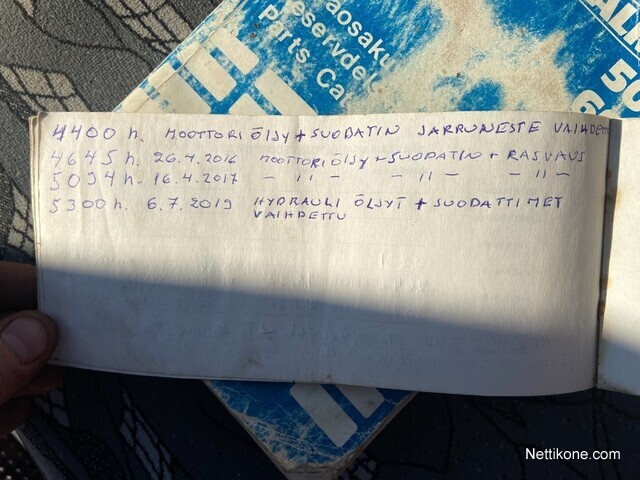 araosaku
Reservdele
Parts Cat
50
6
4400 h. MOOTTORI ÖLJY + SUODATIN JARRUNESTE VAIHDETTU
4645 h. 26.4.2016 MOOTTORI ÖLJY + SUODATIN + RASVAUS
5094 h. 16.4.2017 – 11 – – 11 – – 11 –
5300 h. 6.7.2019 HYDRAULI ÖLJYT + SUODATTIMET
VAIHDETTU
Nettikone.com